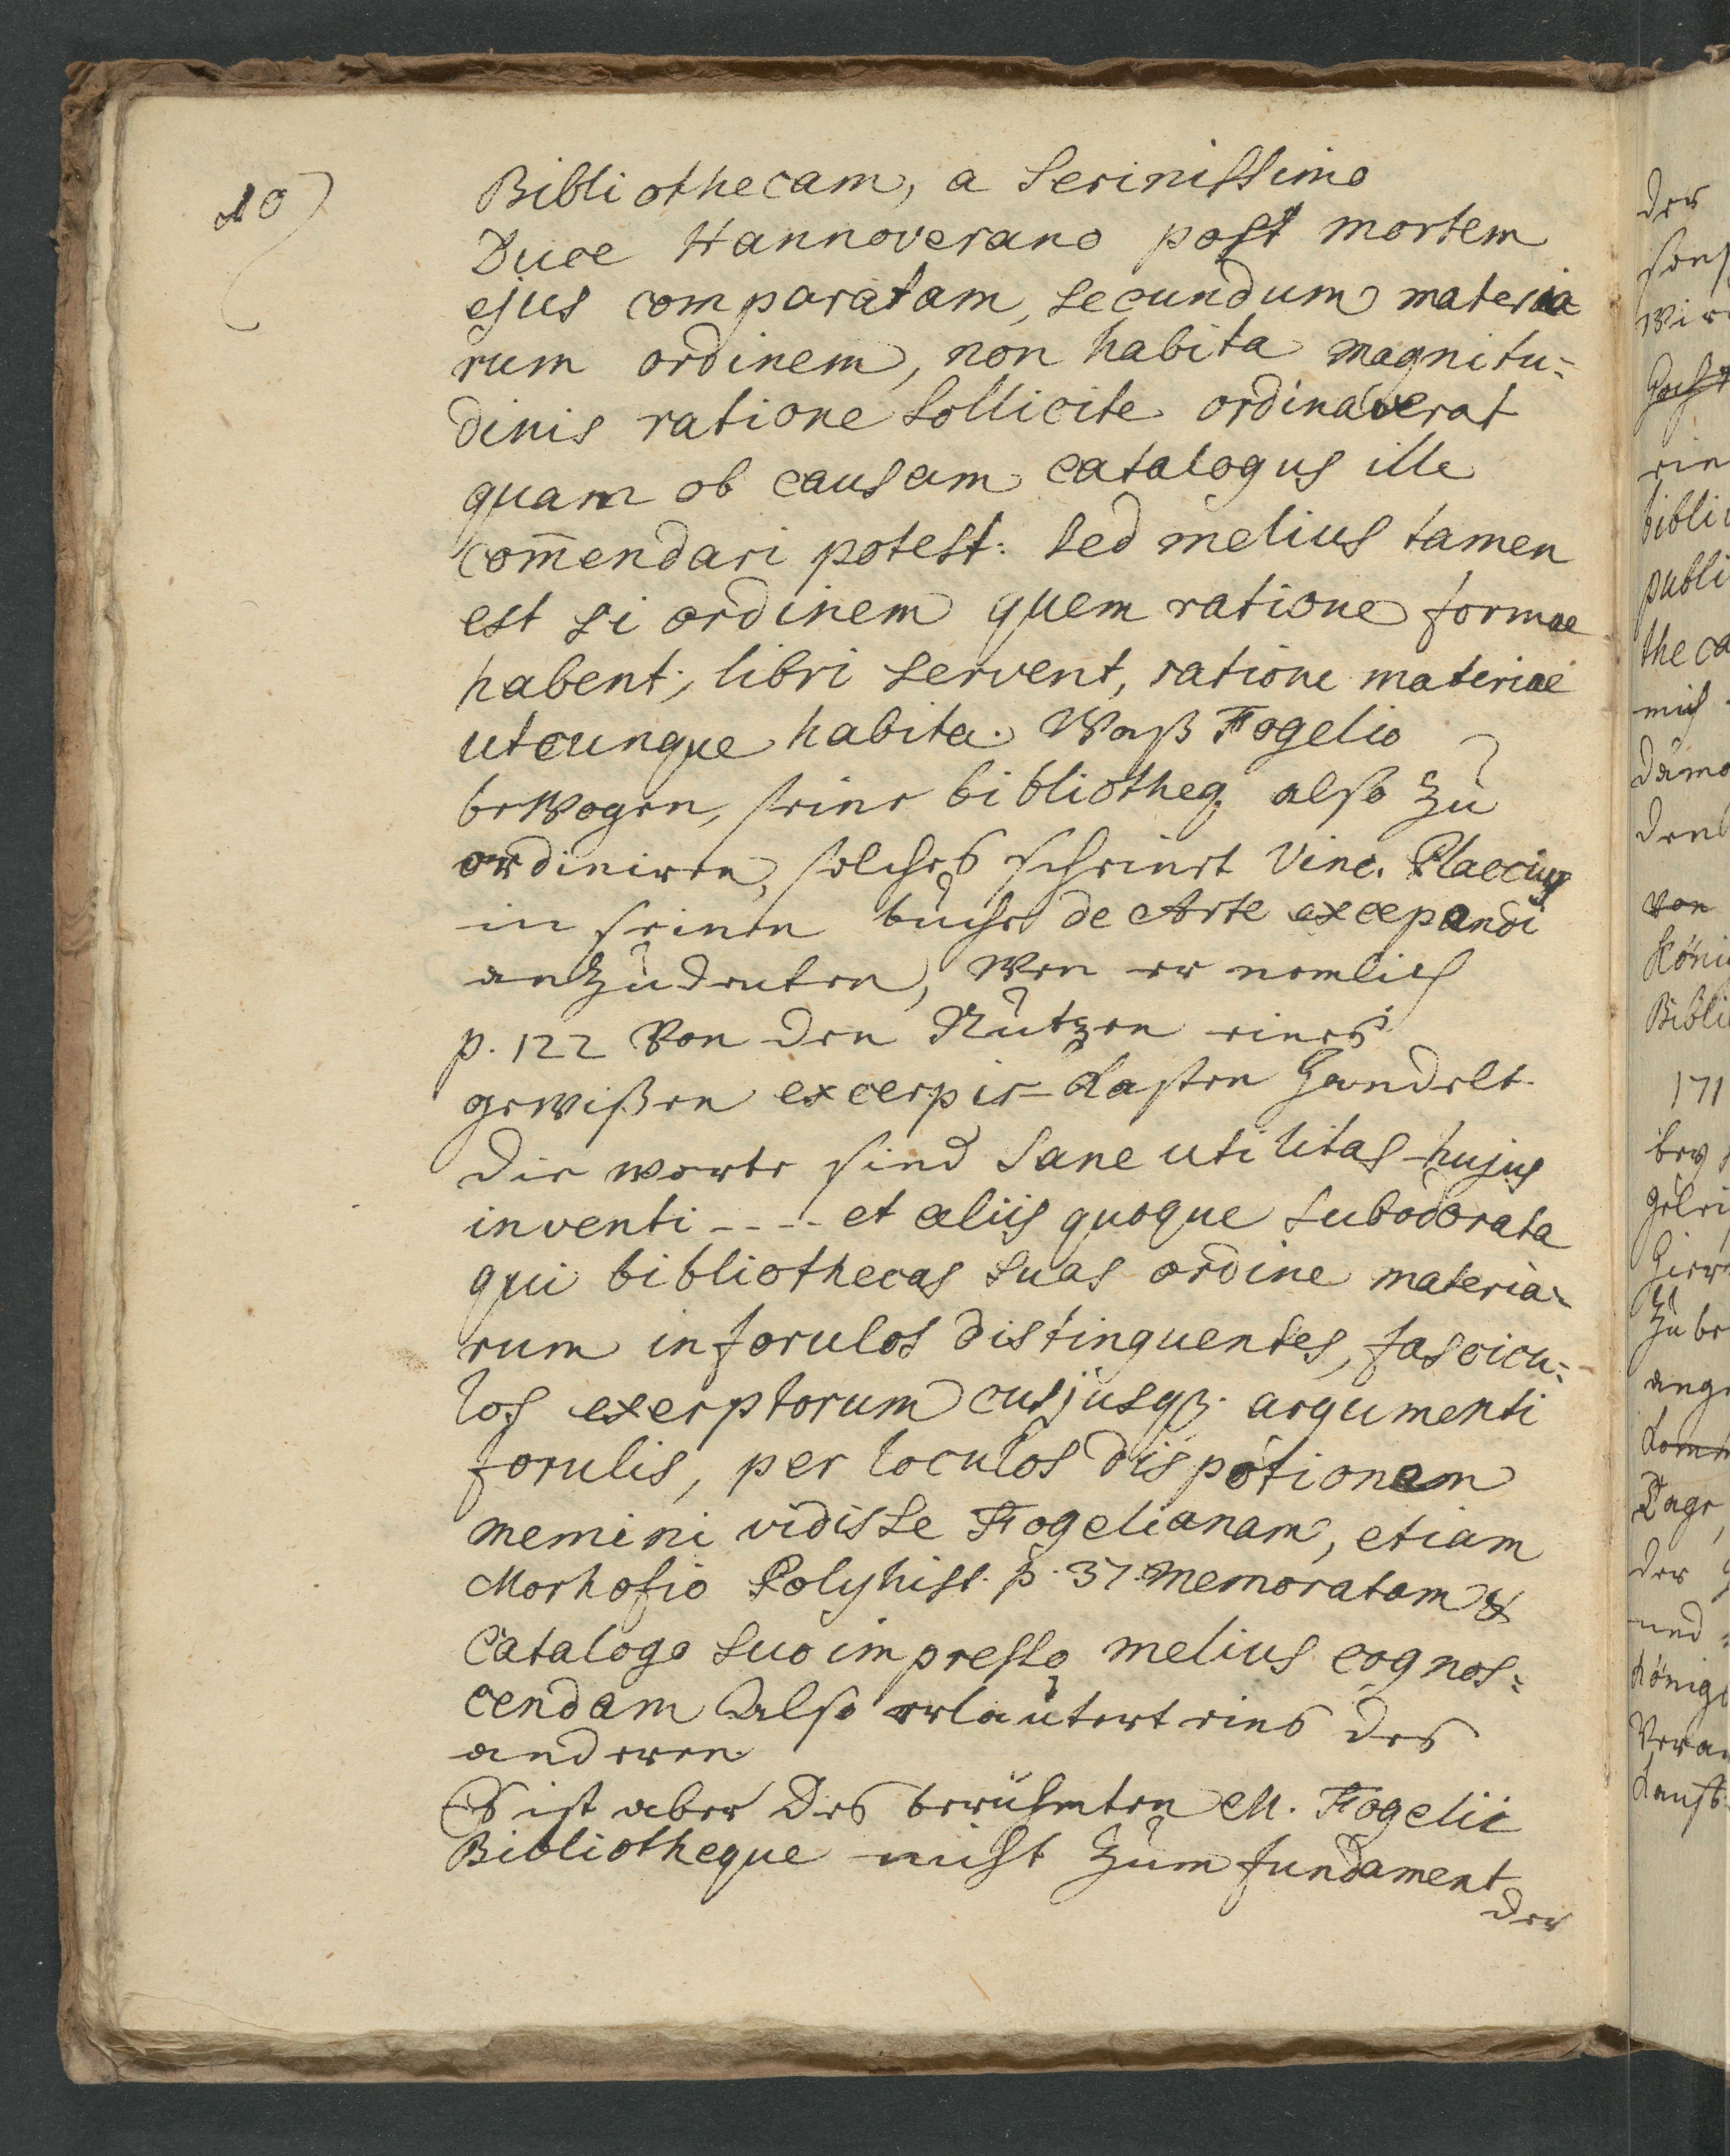 10)
Bibliothecam, a Serinissimo
Duce Hannoverano post mortem
ejus comparatam, secundum materia
rum ordinem, non habita magnitu=
dinis ratione sollicite ordinaverat
quam ob causam catalogus ille
com̄endari potest: sed melius tamen
est si ordinem quem ratione formae
habent, libri servent, ratione materiae
utcunque habita. Waß Fogelio
bewogen, seine bibliotheq. also zu
ordiniren, solches scheinet Vinc. Placcius
in seinen buche de Arte excepandi
anzudeuten, wen er nemlich
p. 122 von den Nutzen eines
gewißen excerpir-Kasten handelt.
die worte sind Sane utilitas hujus
inventi ---- et aliis quoque subodorata
qui bibliothecas suas ordine materia=
rum in forulos distinguentes, fascicu=
los exerptorum cusjusqz. argumenti
forulis, per loculos dispotionem
memini vidisse Fogelianam, etiam
Morhofio Polyhist. p. 37. memoratam &
Catalogo suo impresso melius cognos=
cendam Also erläutert eins des
anderen
Es ist aber des berühmten M. Fogelii
Bibliotheque nicht zum fundament
der
der
wir
ein
bibli
publi
theca
mich
von
Köni
Bibli
171
bey
zu be
Tage,
der
und
König